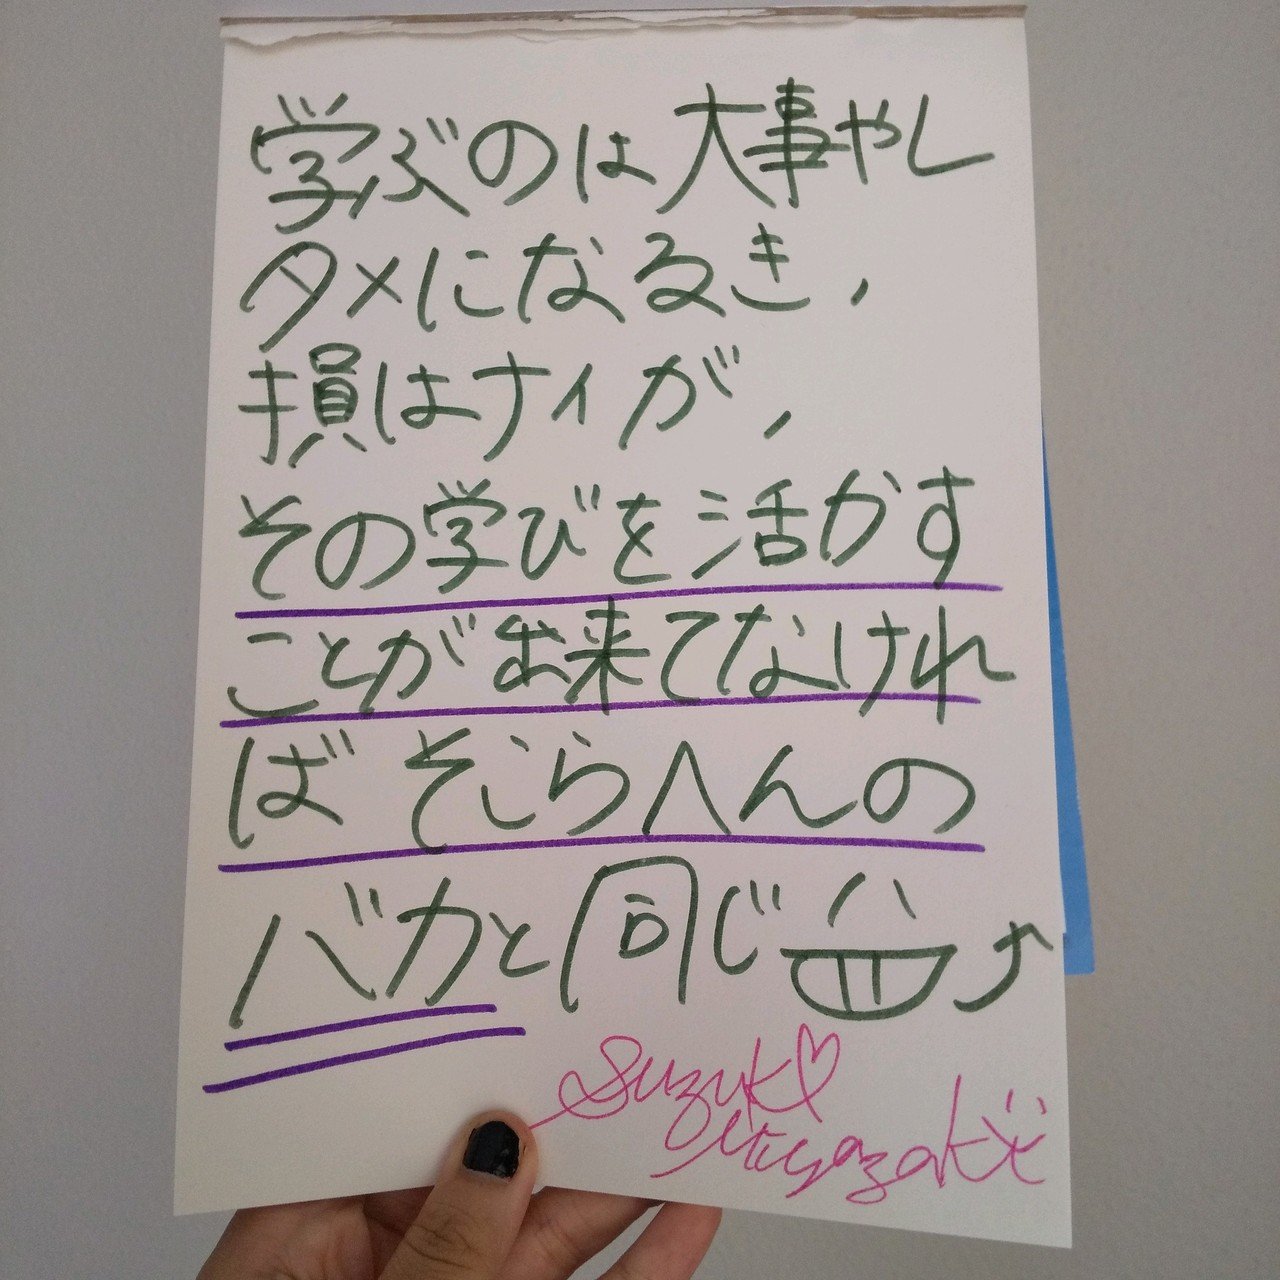 学ぶのは大事やし
タメになるき、
損はナイが、
その学びを活かす
ことが出来てなければ
ば そこらへんの
バカと同じ
Suzuki
Miyazaki